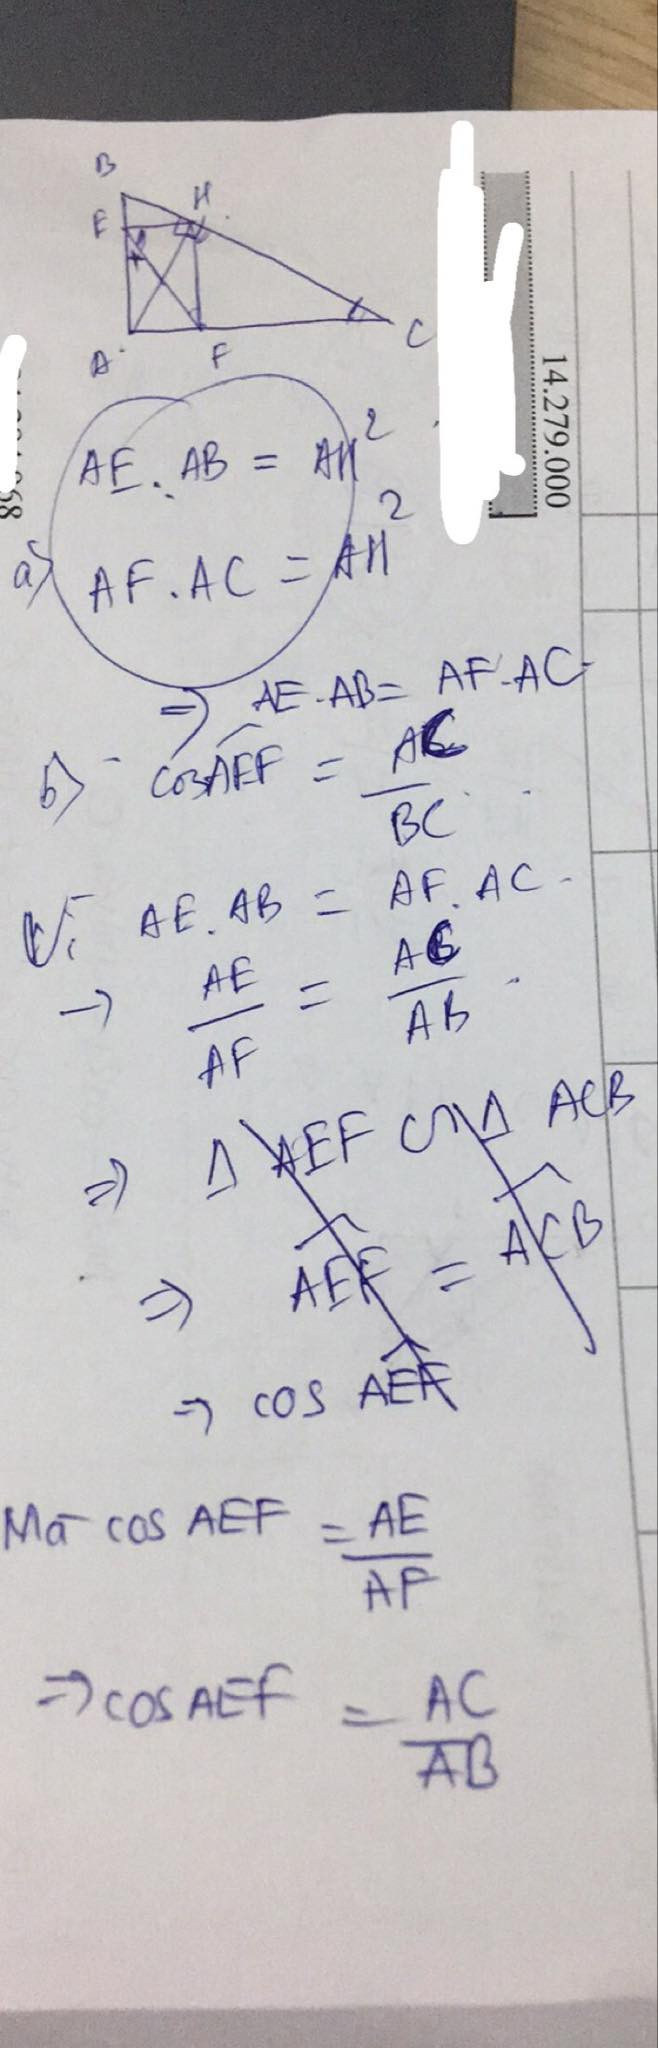 B
H
E
A
F
C
14.279.000
AE.AB = AH²
a) AF.AC = AH²
=> AE.AB = AF.AC
b) cos AEF = AC/BC
Vì AE.AB = AF.AC
-> AE/AF = AC/AB
=> Δ AEF ∽ Δ ACB
=> AEF = ACB
=> cos AEF
Mà cos AEF = AE/AF
=> cos AEF = AC/AB